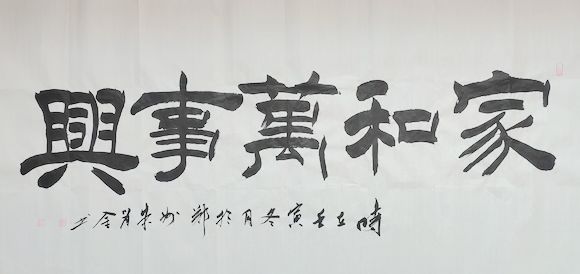 家和萬事興
時在壬寅冬月於鄭州朱